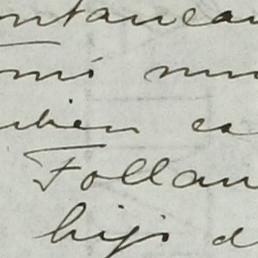 ontanea
omi mu
bien ca
Follan
hijo d